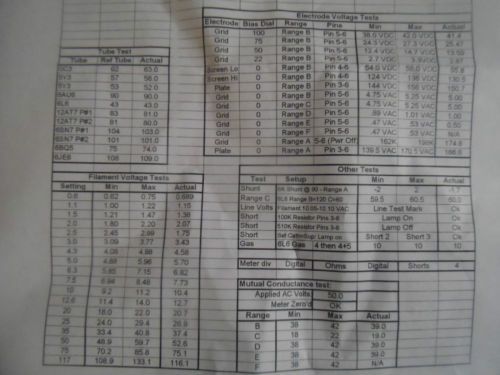 Electrode Voltage Tests
Electrode Bias Dial Range Pins Min Max Actual
Grid 100 Range B Pin 5-6 38.0 VDC 42.0 VDC 41.4
Grid 75 Range B Pin 5-6 24.3 VDC 27.3 VDC 25.47
Grid 50 Range B Pin 5-6 VDC 14.7 VDC 13.59
Grid 22 Range B Pin 5-6 2.7 VDC VDC
Screen Lo 0 Range B Pin 4-6 54.0 VDC 58.0 VDC
Screen Hi 0 Range B Pin 4-6 124 VDC 136 VDC 130.5
Plate 0 Range B Pin 3-6 144 VDC 156 VDC 150.7
Grid 0 Range B Pin 5-6 4.75 VAC 5.25 VAC 5.00
Grid 0 Range C Pin 5-6 4.75 VAC 5.25 VAC 5.00
Grid 0 Range D Pin 5-6 .99 VAC 1.01 VAC 1.00
Grid 0 Range E Pin 5-6 .47 VAC .53 VAC 0.50
Grid 0 Range F Pin 5-6 .47 VAC .53 VAC N/A
Grid 0 Range A 5-6 (Pwr Off) 162K 198K 174.8
Plate 0 Range A Pin 3-6 139.5 VAC 170.5 VAC
Tube Test
Tube Ref Tube Actual
62 63.0
5Y3 57 56.0
5V3 53 52.0
6AU6 90 90.0
6L6 43 43.0
12AT7 P#1 83 81.0
12AT7 P#2 81 80.0
6SN7 P#1 104 103.0
6SN7 P#2 101 101.0
6BQ5 75 74.0
6JE6 108 109.0
Filament Voltage Tests
Setting Min Max Actual
0.6 0.62 0.75 0.689
1.1 1.00 1.22 1.15
1.5 1.21 1.47 1.38
2.0 1.80 2.20 2.07
2.5 2.45 2.99 1.75
3.0 3.09 3.77 3.43
4.3 4.88 4.58
5.0 4.88 5.96 5.70
6.3 5.85 7.15 6.82
7.5 8.48 7.73
10 9.2 11.2 10.4
12.6 11.4 14.0 12.7
20 18.0 22.0 20.7
25 24.0 29.4
35 33.4 40.8 37.4
50 48.9 59.7 52.6
75 70.2 85.8 75.1
117 108.9 133.1 116.1
Other Tests
Test Setup Min Max Actual
Shunt @ 90 - Range A -2 2
Range C 6L6 Range B=120 C=60 59.5 60.5 60.0
Line Volts Filament 10.05-10.10 VAC Line Test Mark Ok
Short 100K Resistor Pins 3-6 Lamp On Ok
Short 510K Resistor Pins 3-6 Lamp Off Ok
Short Set Lamp on Short 2 Short 3 Ok
Gas 6L6 Gas 4 then 4+5 10 10 10
Meter div Digital Ohms Digital Shorts 4
Mutual Conductance test:
Applied AC Volts 50.0
Meter Zero'd OK
Range Min Max Actual
B 38 42 39.0
C 18 22 19.0
D 38 42 39.0
E 38 42 39.0
F 38 42 N/A